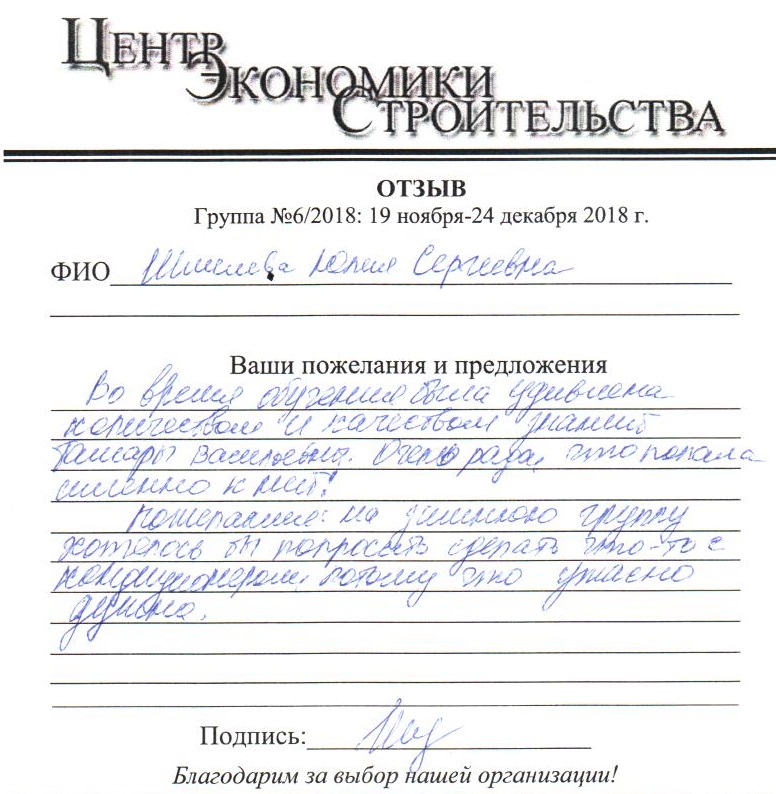 ЦЕНТР
ЭКОНОМИКИ
СТРОИТЕЛЬСТВА
ОТЗЫВ
Группа №6/2018: 19 ноября-24 декабря 2018 г.
ФИО Юлия Сергеевна
Ваши пожелания и предложения
Во время обучения была удивлена
количеством и качеством знаний
Тамары Васильевны. Очень рада, что попала
именно к ней!
Пожелание: на зимнюю группу
хотелось бы попросить сделать что-то с
кондиционером, потому что ужасно
душно.
Подпись:
Благодарим за выбор нашей организации!